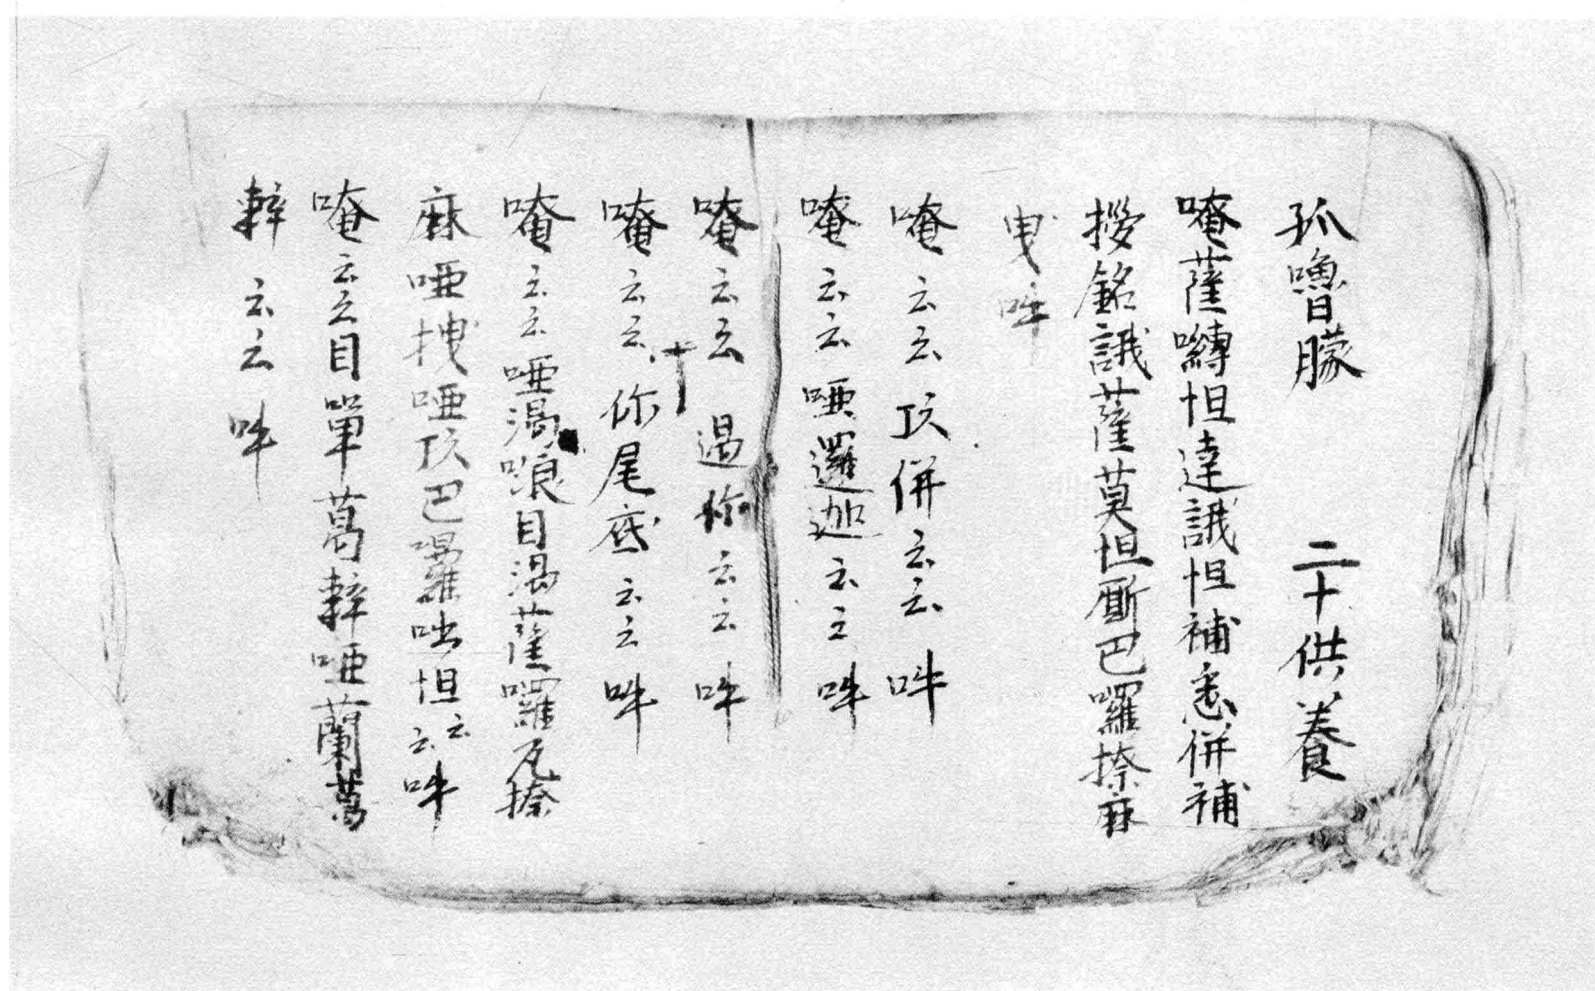 孤嚕朦　二十供養
唵薩嚩怛達誐怛補悉併補
拶銘誐薩莫怛廝巴囉捺麻
曳吽
唵云云㺷併云云吽
唵云云啞邏迦云云吽
唵云云遏你云云吽
唵云云你尾底云云吽
唵云云啞渴哴目渴薩囉瓦捺
麻啞拽啞㺷巴囉咄怛云云吽
唵云云目單葛辢啞蘭葛
辢云云吽